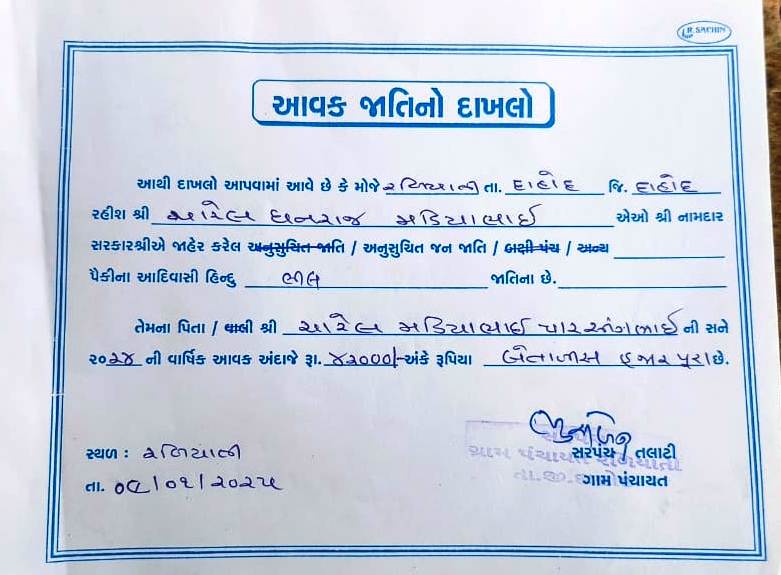 R. SACHIN
આવક જાતિનો દાખલો
આથી દાખલો આપવામાં આવે છે કે મોજે રળિયાતી તા. દાહોદ જિ. દાહોદ
રહીશ શ્રી ધનરાજ મડિયાભાઈ એઓ શ્રી નામદાર
સરકારશ્રીએ જાહેર કરેલ અનુસુચિત જાતિ / અનુસુચિત જન જાતિ / બક્ષી પંચ / અન્ય
પૈકીના આદિવાસી હિન્દુ ભીલ જાતિના છે.
તેમના પિતા / વાલી શ્રી મડિયાભાઈ ની સને
૨૦૨૪ ની વાર્ષિક આવક અંદાજે રૂા. ૪૨૦૦૦/- અંકે રૂપિયા બેતાળીસ હજાર પુરા છે.
સ્થળ : રળિયાતી
સરપંચ / તલાટી
ગ્રામ પંચાયત રળિયાતી
તા. ૦૮/૦૧/૨૦૨૫
ગામે પંચાયત
તા.જી.